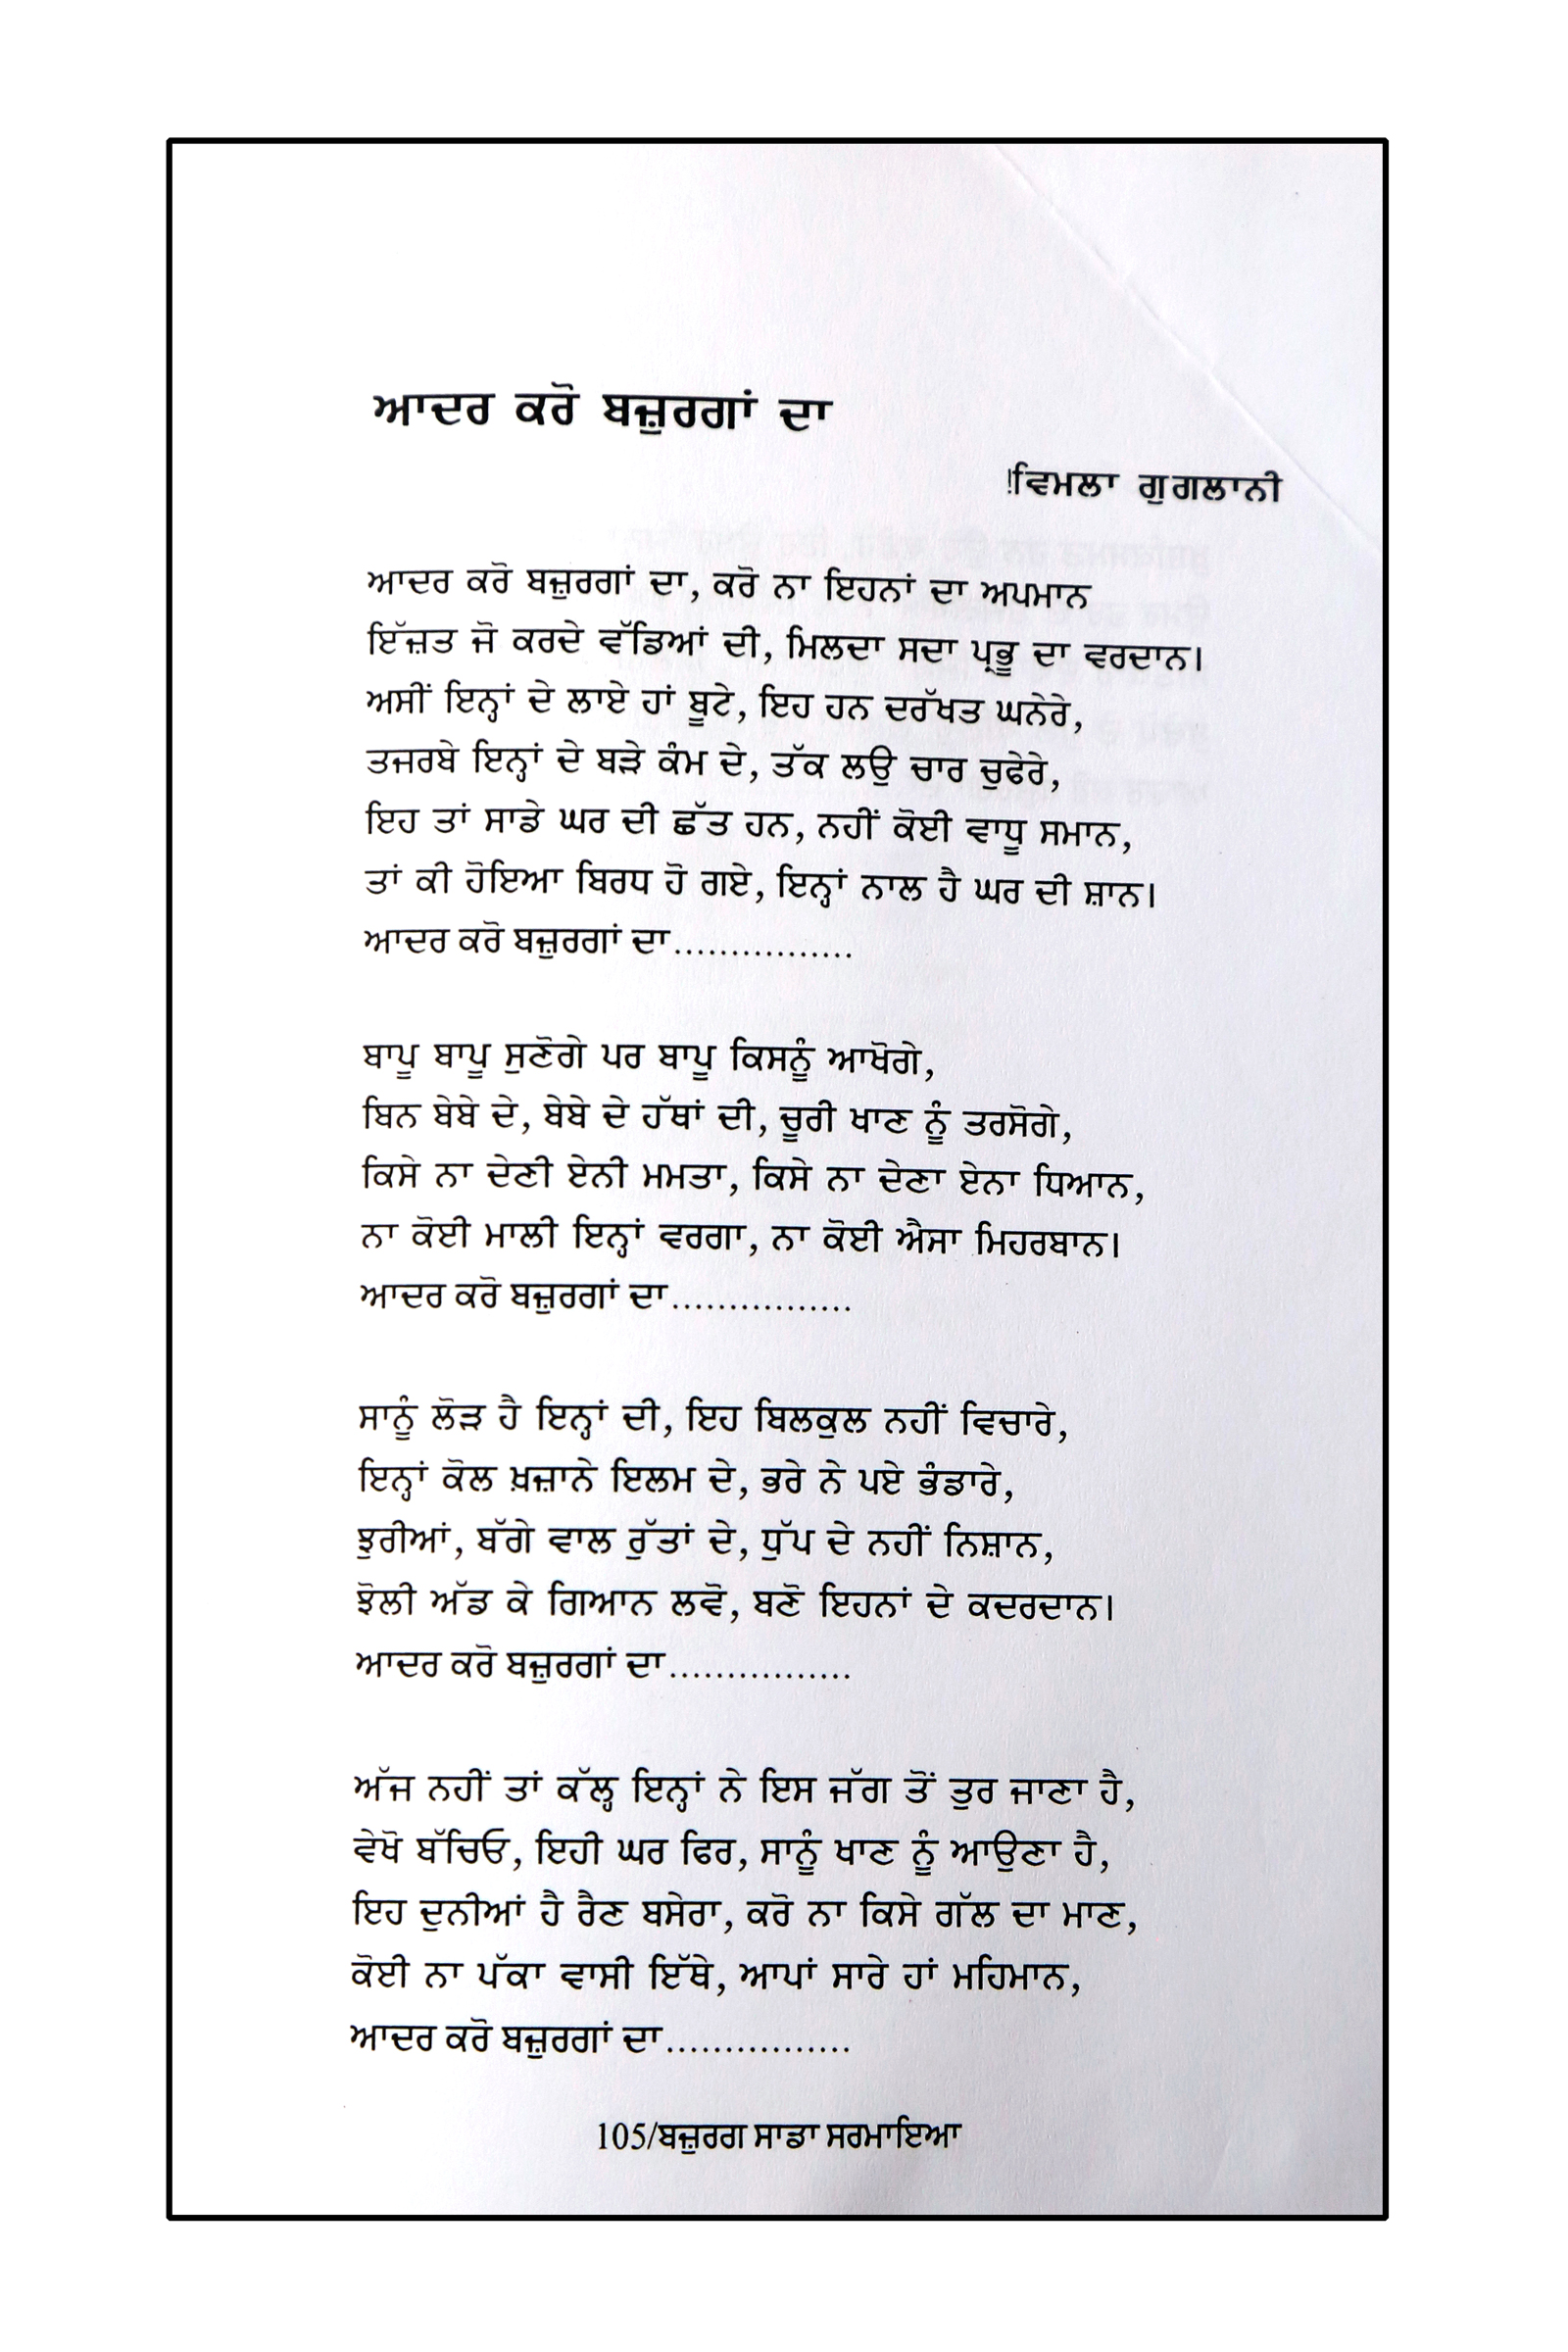 ਆਦਰ ਕਰੋ ਬਜ਼ੁਰਗਾਂ ਦਾ
!ਵਿਮਲਾ ਗੁਗਲਾਨੀ
ਆਦਰ ਕਰੋ ਬਜ਼ੁਰਗਾਂ ਦਾ, ਕਰੋ ਨਾ ਇਹਨਾਂ ਦਾ ਅਪਮਾਨ
ਇੱਜ਼ਤ ਜੋ ਕਰਦੇ ਵੱਡਿਆਂ ਦੀ, ਮਿਲਦਾ ਸਦਾ ਪ੍ਰਭੂ ਦਾ ਵਰਦਾਨ।
ਅਸੀਂ ਇਨ੍ਹਾਂ ਦੇ ਲਾਏ ਹਾਂ ਬੂਟੇ, ਇਹ ਹਨ ਦਰੱਖਤ ਘਨੇਰੇ,
ਤਜਰਬੇ ਇਨ੍ਹਾਂ ਦੇ ਬੜੇ ਕੰਮ ਦੇ, ਤੱਕ ਲਉ ਚਾਰ ਚੁਫੇਰੇ,
ਇਹ ਤਾਂ ਸਾਡੇ ਘਰ ਦੀ ਛੱਤ ਹਨ, ਨਹੀਂ ਕੋਈ ਵਾਧੂ ਸਮਾਨ,
ਤਾਂ ਕੀ ਹੋਇਆ ਬਿਰਧ ਹੋ ਗਏ, ਇਨ੍ਹਾਂ ਨਾਲ ਹੈ ਘਰ ਦੀ ਸ਼ਾਨ।
ਆਦਰ ਕਰੋ ਬਜ਼ੁਰਗਾਂ ਦਾ................
ਬਾਪੂ ਬਾਪੂ ਸੁਣੋਗੇ ਪਰ ਬਾਪੂ ਕਿਸਨੂੰ ਆਖੋਗੇ,
ਬਿਨ ਬੇਬੇ ਦੇ, ਬੇਬੇ ਦੇ ਹੱਥਾਂ ਦੀ, ਚੂਰੀ ਖਾਣ ਨੂੰ ਤਰਸੋਗੇ,
ਕਿਸੇ ਨਾ ਦੇਣੀ ਏਨੀ ਮਮਤਾ, ਕਿਸੇ ਨਾ ਦੇਣਾ ਏਨਾ ਧਿਆਨ,
ਨਾ ਕੋਈ ਮਾਲੀ ਇਨ੍ਹਾਂ ਵਰਗਾ, ਨਾ ਕੋਈ ਐਸਾ ਮਿਹਰਬਾਨ।
ਆਦਰ ਕਰੋ ਬਜ਼ੁਰਗਾਂ ਦਾ................
ਸਾਨੂੰ ਲੋੜ ਹੈ ਇਨ੍ਹਾਂ ਦੀ, ਇਹ ਬਿਲਕੁਲ ਨਹੀਂ ਵਿਚਾਰੇ,
ਇਨ੍ਹਾਂ ਕੋਲ ਖ਼ਜ਼ਾਨੇ ਇਲਮ ਦੇ, ਭਰੇ ਨੇ ਪਏ ਭੰਡਾਰੇ,
ਝੁਰੀਆਂ, ਬੱਗੇ ਵਾਲ ਰੁੱਤਾਂ ਦੇ, ਧੁੱਪ ਦੇ ਨਹੀਂ ਨਿਸ਼ਾਨ,
ਝੋਲੀ ਅੱਡ ਕੇ ਗਿਆਨ ਲਵੋ, ਬਣੋ ਇਹਨਾਂ ਦੇ ਕਦਰਦਾਨ।
ਆਦਰ ਕਰੋ ਬਜ਼ੁਰਗਾਂ ਦਾ................
ਅੱਜ ਨਹੀਂ ਤਾਂ ਕੱਲ੍ਹ ਇਨ੍ਹਾਂ ਨੇ ਇਸ ਜੱਗ ਤੋਂ ਤੁਰ ਜਾਣਾ ਹੈ,
ਵੇਖੋ ਬੱਚਿਓ, ਇਹੀ ਘਰ ਫਿਰ, ਸਾਨੂੰ ਖਾਣ ਨੂੰ ਆਉਣਾ ਹੈ,
ਇਹ ਦੁਨੀਆਂ ਹੈ ਰੈਣ ਬਸੇਰਾ, ਕਰੋ ਨਾ ਕਿਸੇ ਗੱਲ ਦਾ ਮਾਣ,
ਕੋਈ ਨਾ ਪੱਕਾ ਵਾਸੀ ਇੱਥੇ, ਆਪਾਂ ਸਾਰੇ ਹਾਂ ਮਹਿਮਾਨ,
ਆਦਰ ਕਰੋ ਬਜ਼ੁਰਗਾਂ ਦਾ................
105/ਬਜ਼ੁਰਗ ਸਾਡਾ ਸਰਮਾਇਆ